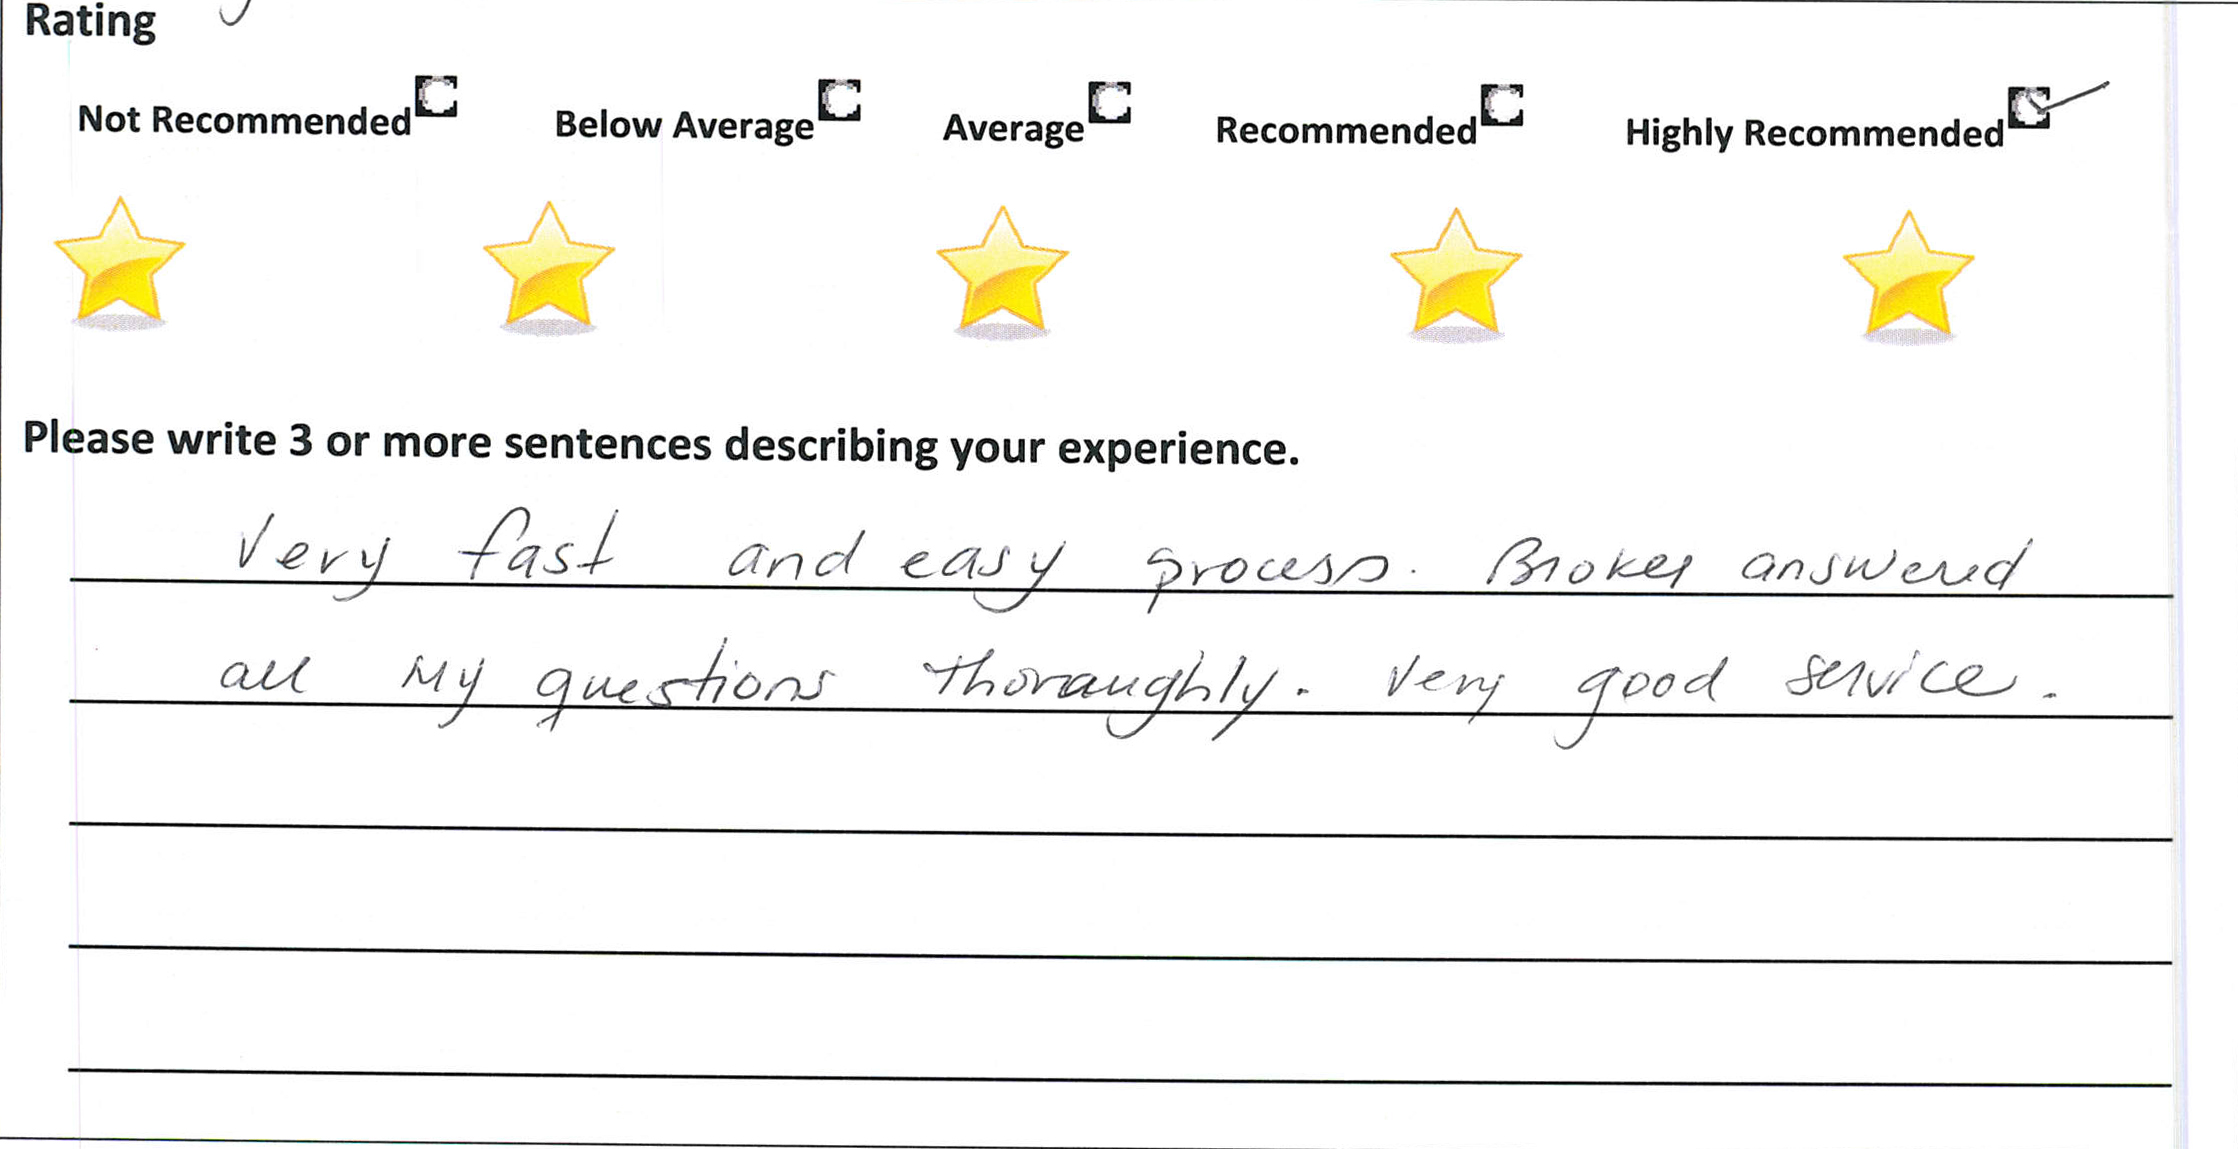 Rating
Not Recommended Below Average Average Recommended Highly Recommended
Please write 3 or more sentences describing your experience.
Very fast and easy process. Broker answered
all my questions thoroughly. Very good service.